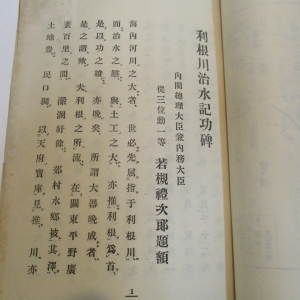 利根川治水記功碑
內閣總理大臣兼內務大臣
從三位勳一等 若槻禮次郞題額
海內河川之大者世必先屈指于利根川
而治水之懋與土工之大亦推利根爲首
是以功之竣亦晚矣所謂大器晚成者
是之謂歟夫利根之所流在關東平野廣
袤百里之間瀠洄紆徐郊村水鄕被其澤
土地豐民口稠以天府寶庫見推川亦
1